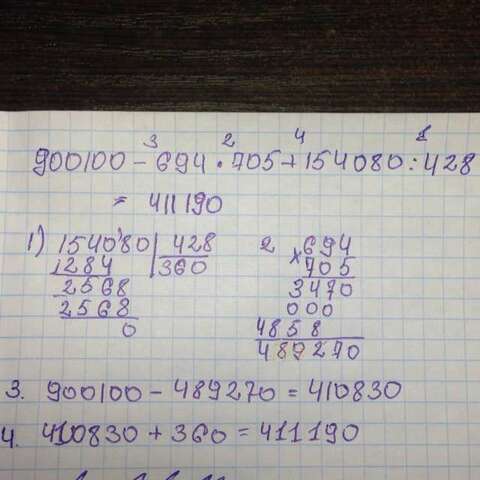 3 2 4 1
900100 - 694 · 705 + 154080 : 428
= 411190
1) 154080 | 428
1284 | 360
2568
2568
0
2 × 694
705
3470
000
4858
489270
3. 900100 - 489270 = 410830
4. 410830 + 360 = 411190